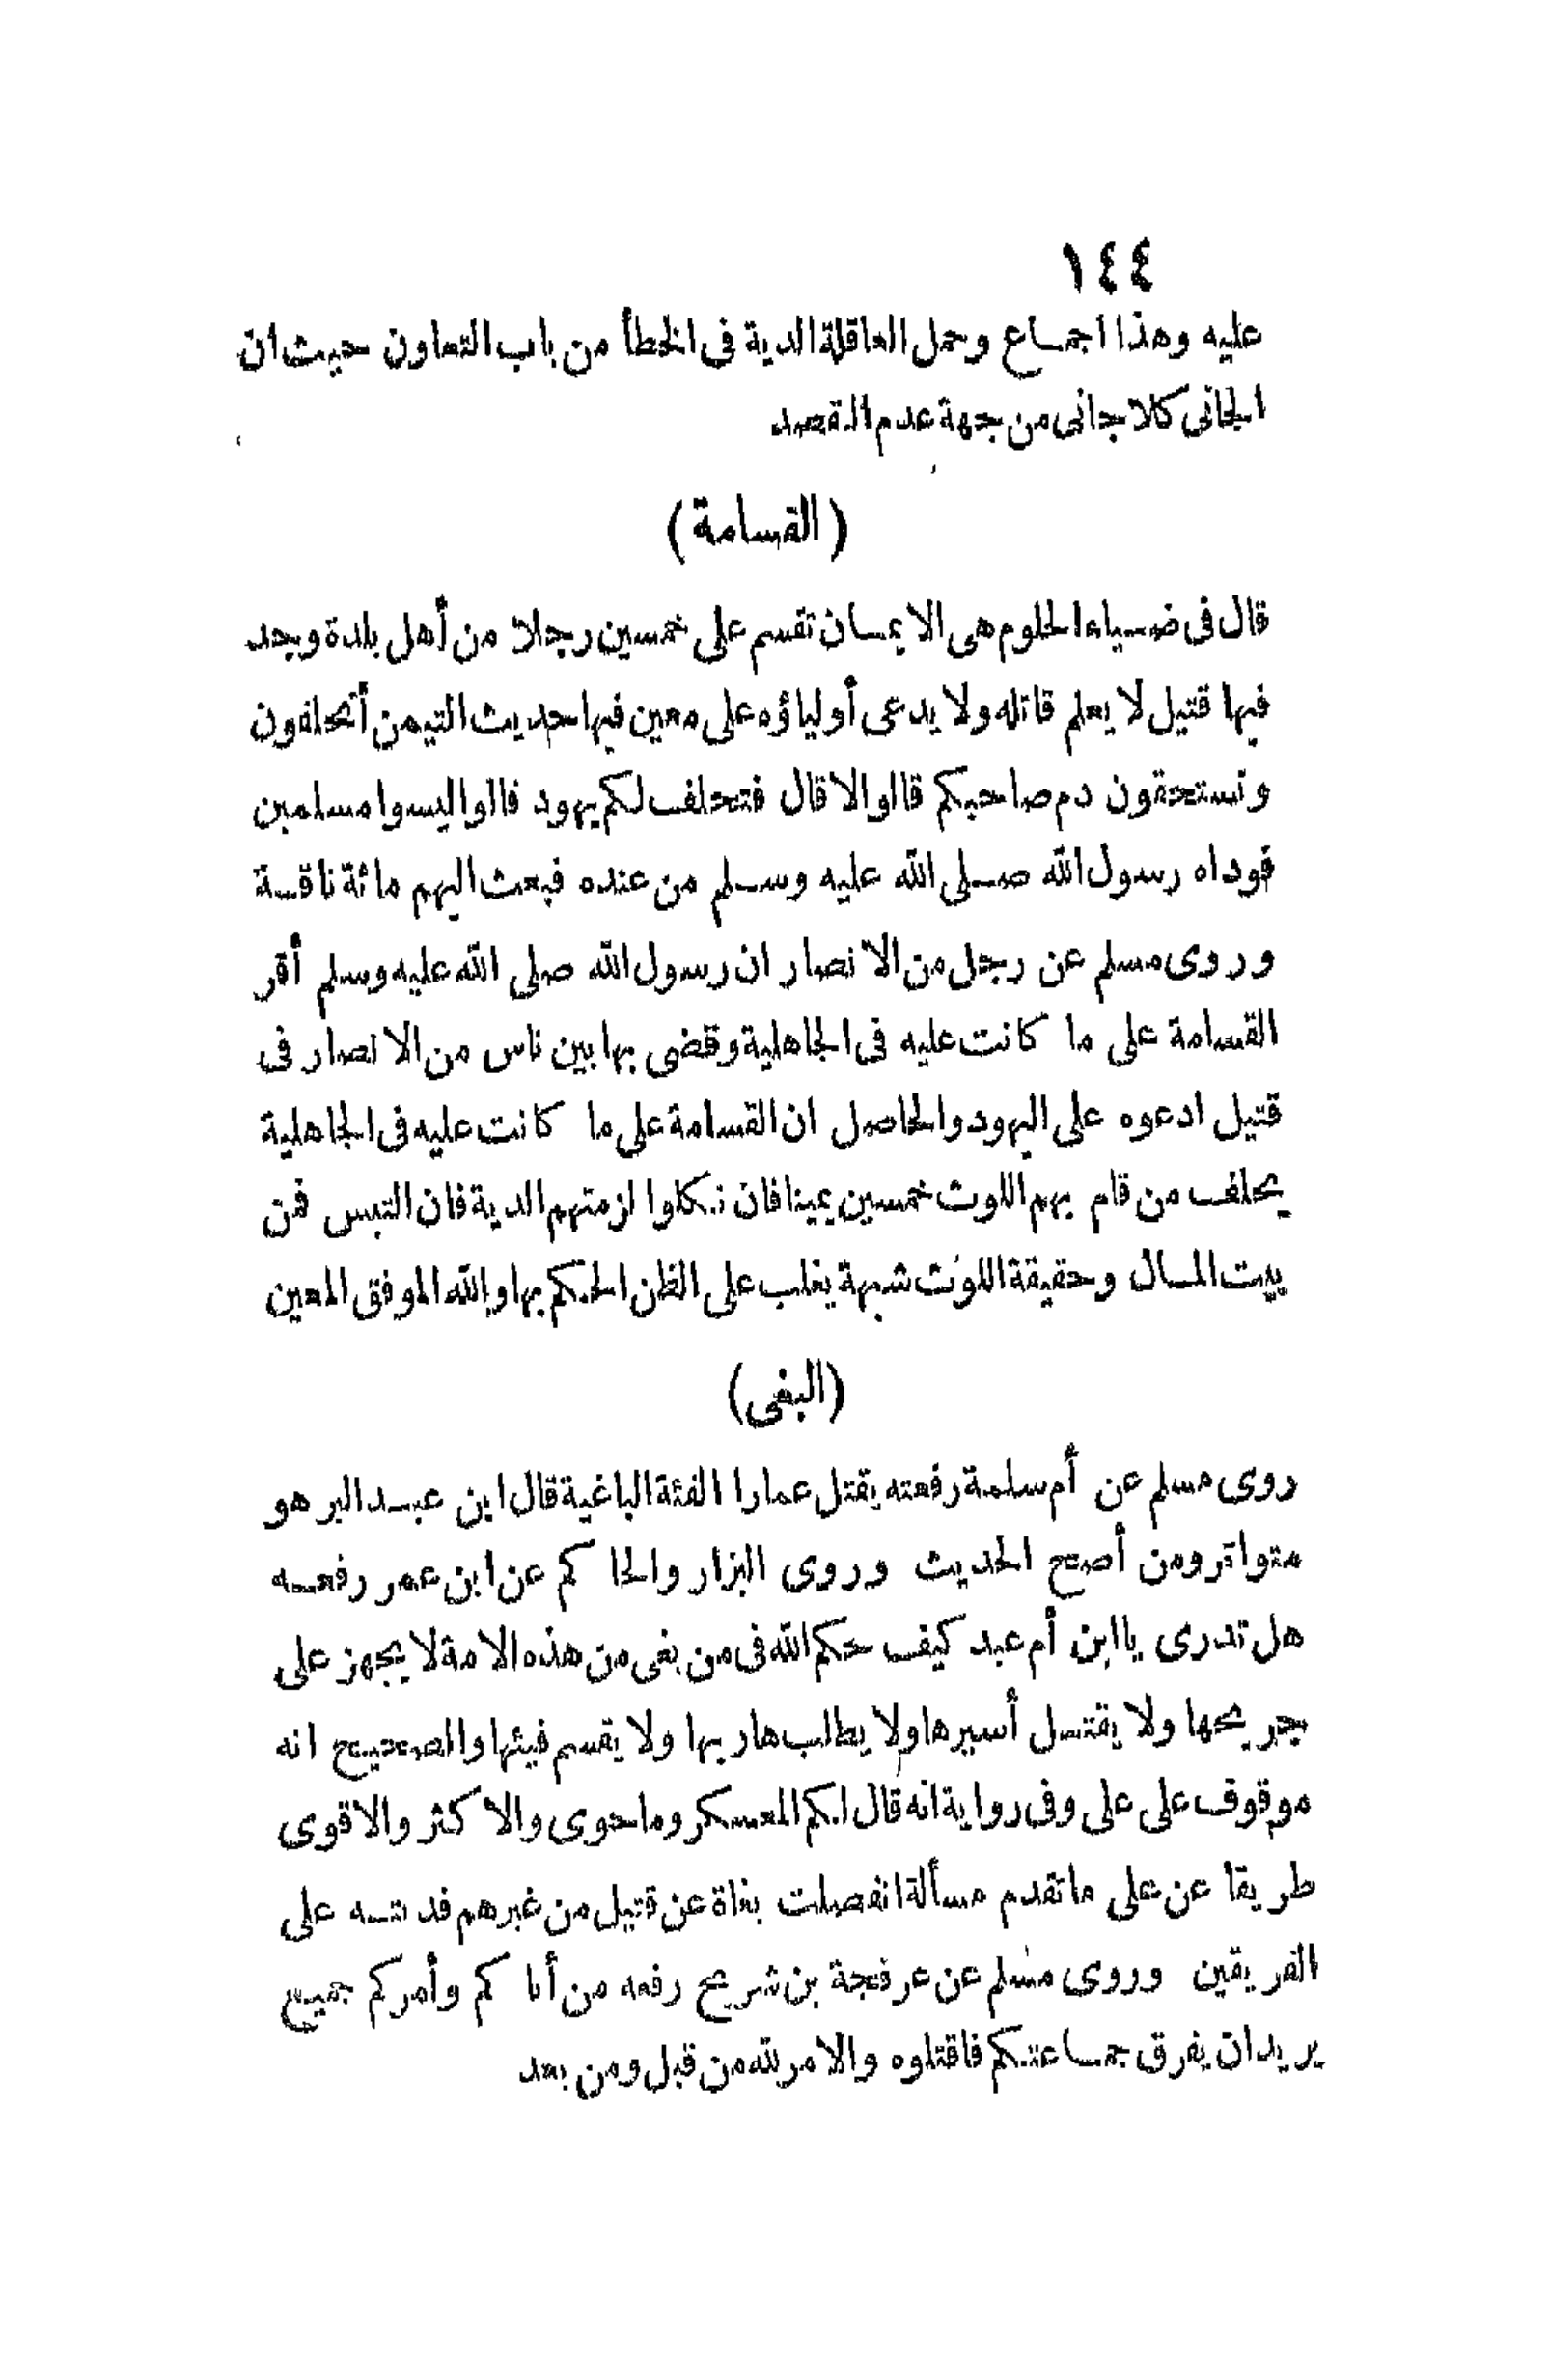 ١٤٤
عليه وهذا اجماع وحمل العاقلة الدية فى الخطأ من باب التعاون حيث ان
الجانى كلا جانى من جهة عدم القصد
(القسامة)
قال فى ضياء الحلوم هى الايمان تقسم على خمسين رجلا من أهل بلدة وجد
فيها قتيل لا يعلم قاتله ولا يدعى أولياؤه على معين فيها حديث التيمن أتحلفون
وتستحقون دم صاحبكم قالوا لا قال فتحلف لكم يهود قالوا ليسوا مسلمين
فوداه رسول الله صلى الله عليه وسلم من عنده فبعث اليهم مائة ناقة
وروى مسلم عن رجل من الانصار ان رسول الله صلى الله عليه وسلم أقر
القسامة على ما كانت عليه فى الجاهلية وقضى بها بين ناس من الانصار فى
قتيل ادعوه على اليهود والحاصل ان القسامة على ما كانت عليه فى الجاهلية
يحلف من قام بهم اللوث خمسين يمينا فان نكلوا لزمتهم الدية فان التبس فمن
بيت المال وحقيقة اللوث شبهة يغلب على الظن الحكم بها والله الموفق المعين
(البغى)
روى مسلم عن أم سلمة رفعته يقتل عمارا الفئة الباغية قال ابن عبد البر هو
متواتر ومن أصح الحديث وروى البزار والحاكم عن ابن عمر رفعه
هل تدرى يا ابن أم عبد كيف حكم الله فى من بغى من هذه الامة لا يجهز على
جريحها ولا يقتل أسيرها ولا يطالب هاربها ولا يقسم فيئها والصحيح انه
موقوف على على وفى رواية انه قال لكم المعسكر وما حوى والاكثر والاقوى
طريقا عن على ما تقدم مسألة انفصلت بغاة عن قتيل من غيرهم فديته على
الفريقين وروى مسلم عن عرفجة بن شريح رفعه من أتاكم وأمركم جميع
يريد ان يفرق جماعتكم فاقتلوه والامر لله من قبل ومن بعد